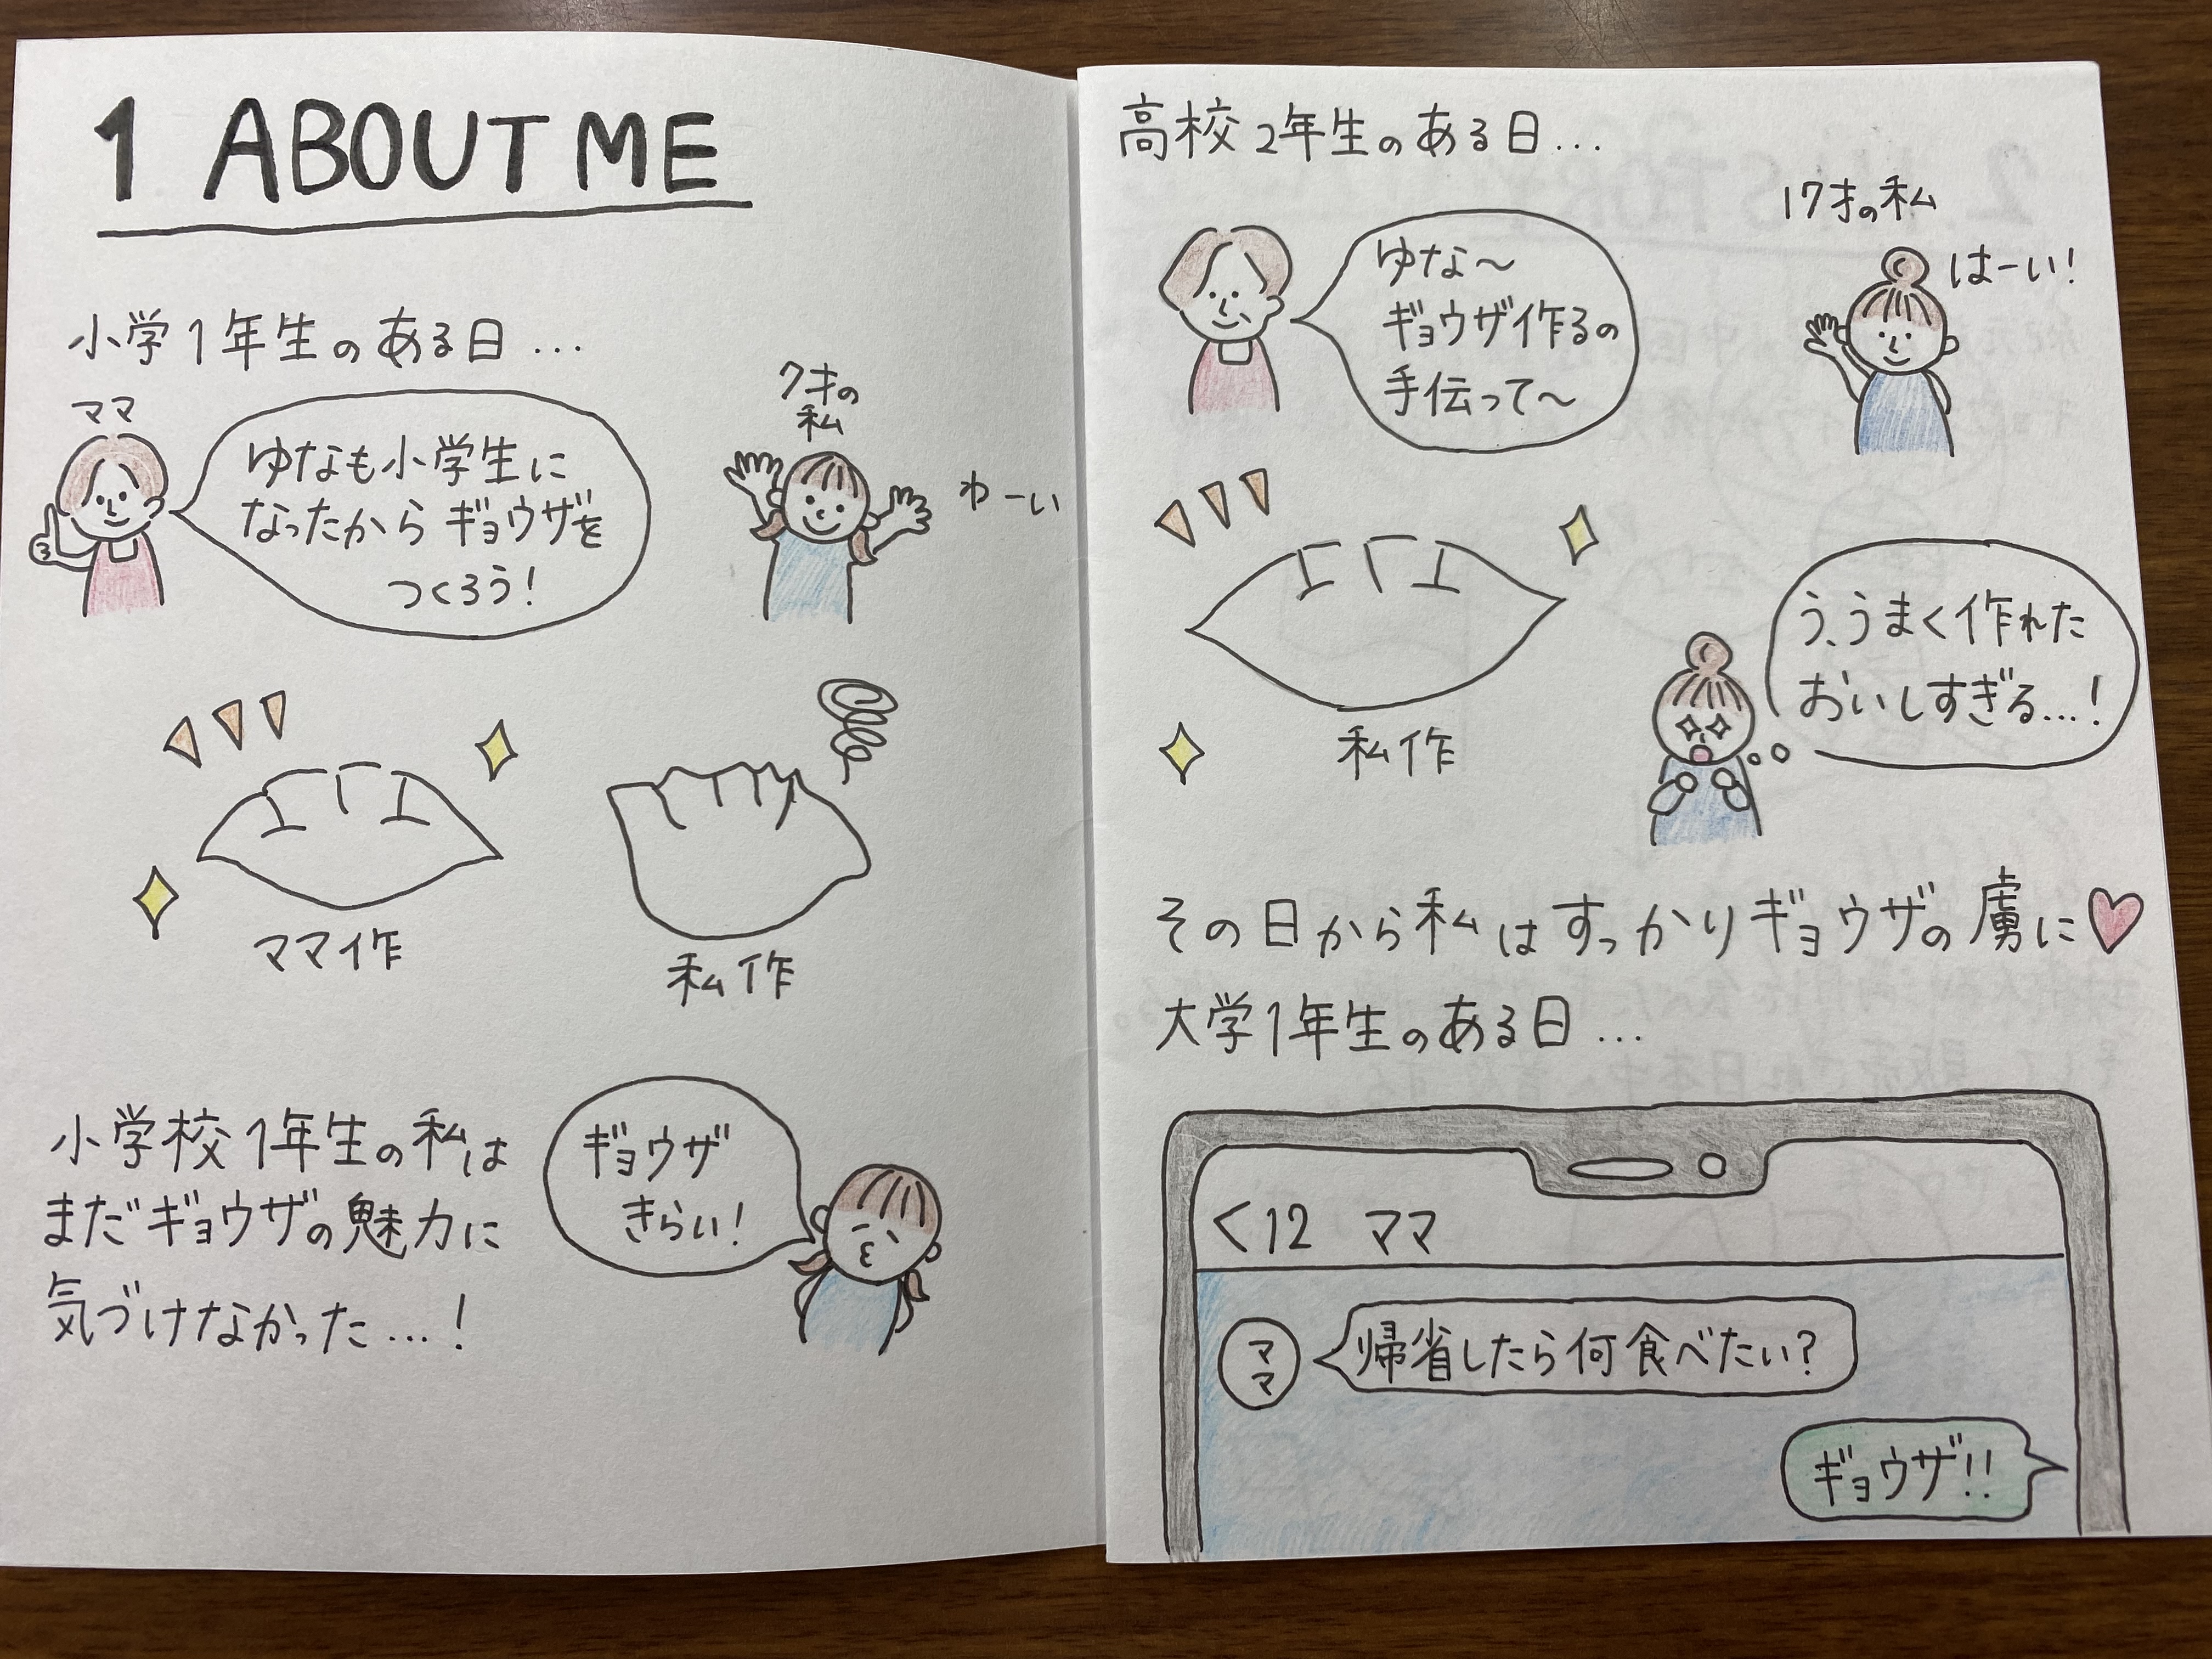 1 ABOUT ME
小学1年生のある日…
ママ
ゆなも小学生に
なったからギョウザを
つくろう!
7才の
私
わーい
ママ作
私作
小学校1年生の私は
まだギョウザの魅力に
気づけなかった…!
ギョウザ
きらい!
高校2年生のある日…
ゆな〜
ギョウザ作るの
手伝って〜
17才の私
はーい!
私作
う、うまく作れた
おいしすぎる…!
その日から私はすっかりギョウザの虜に
大学1年生のある日…
<12 ママ
ママ
帰省したら何食べたい?
ギョウザ!!